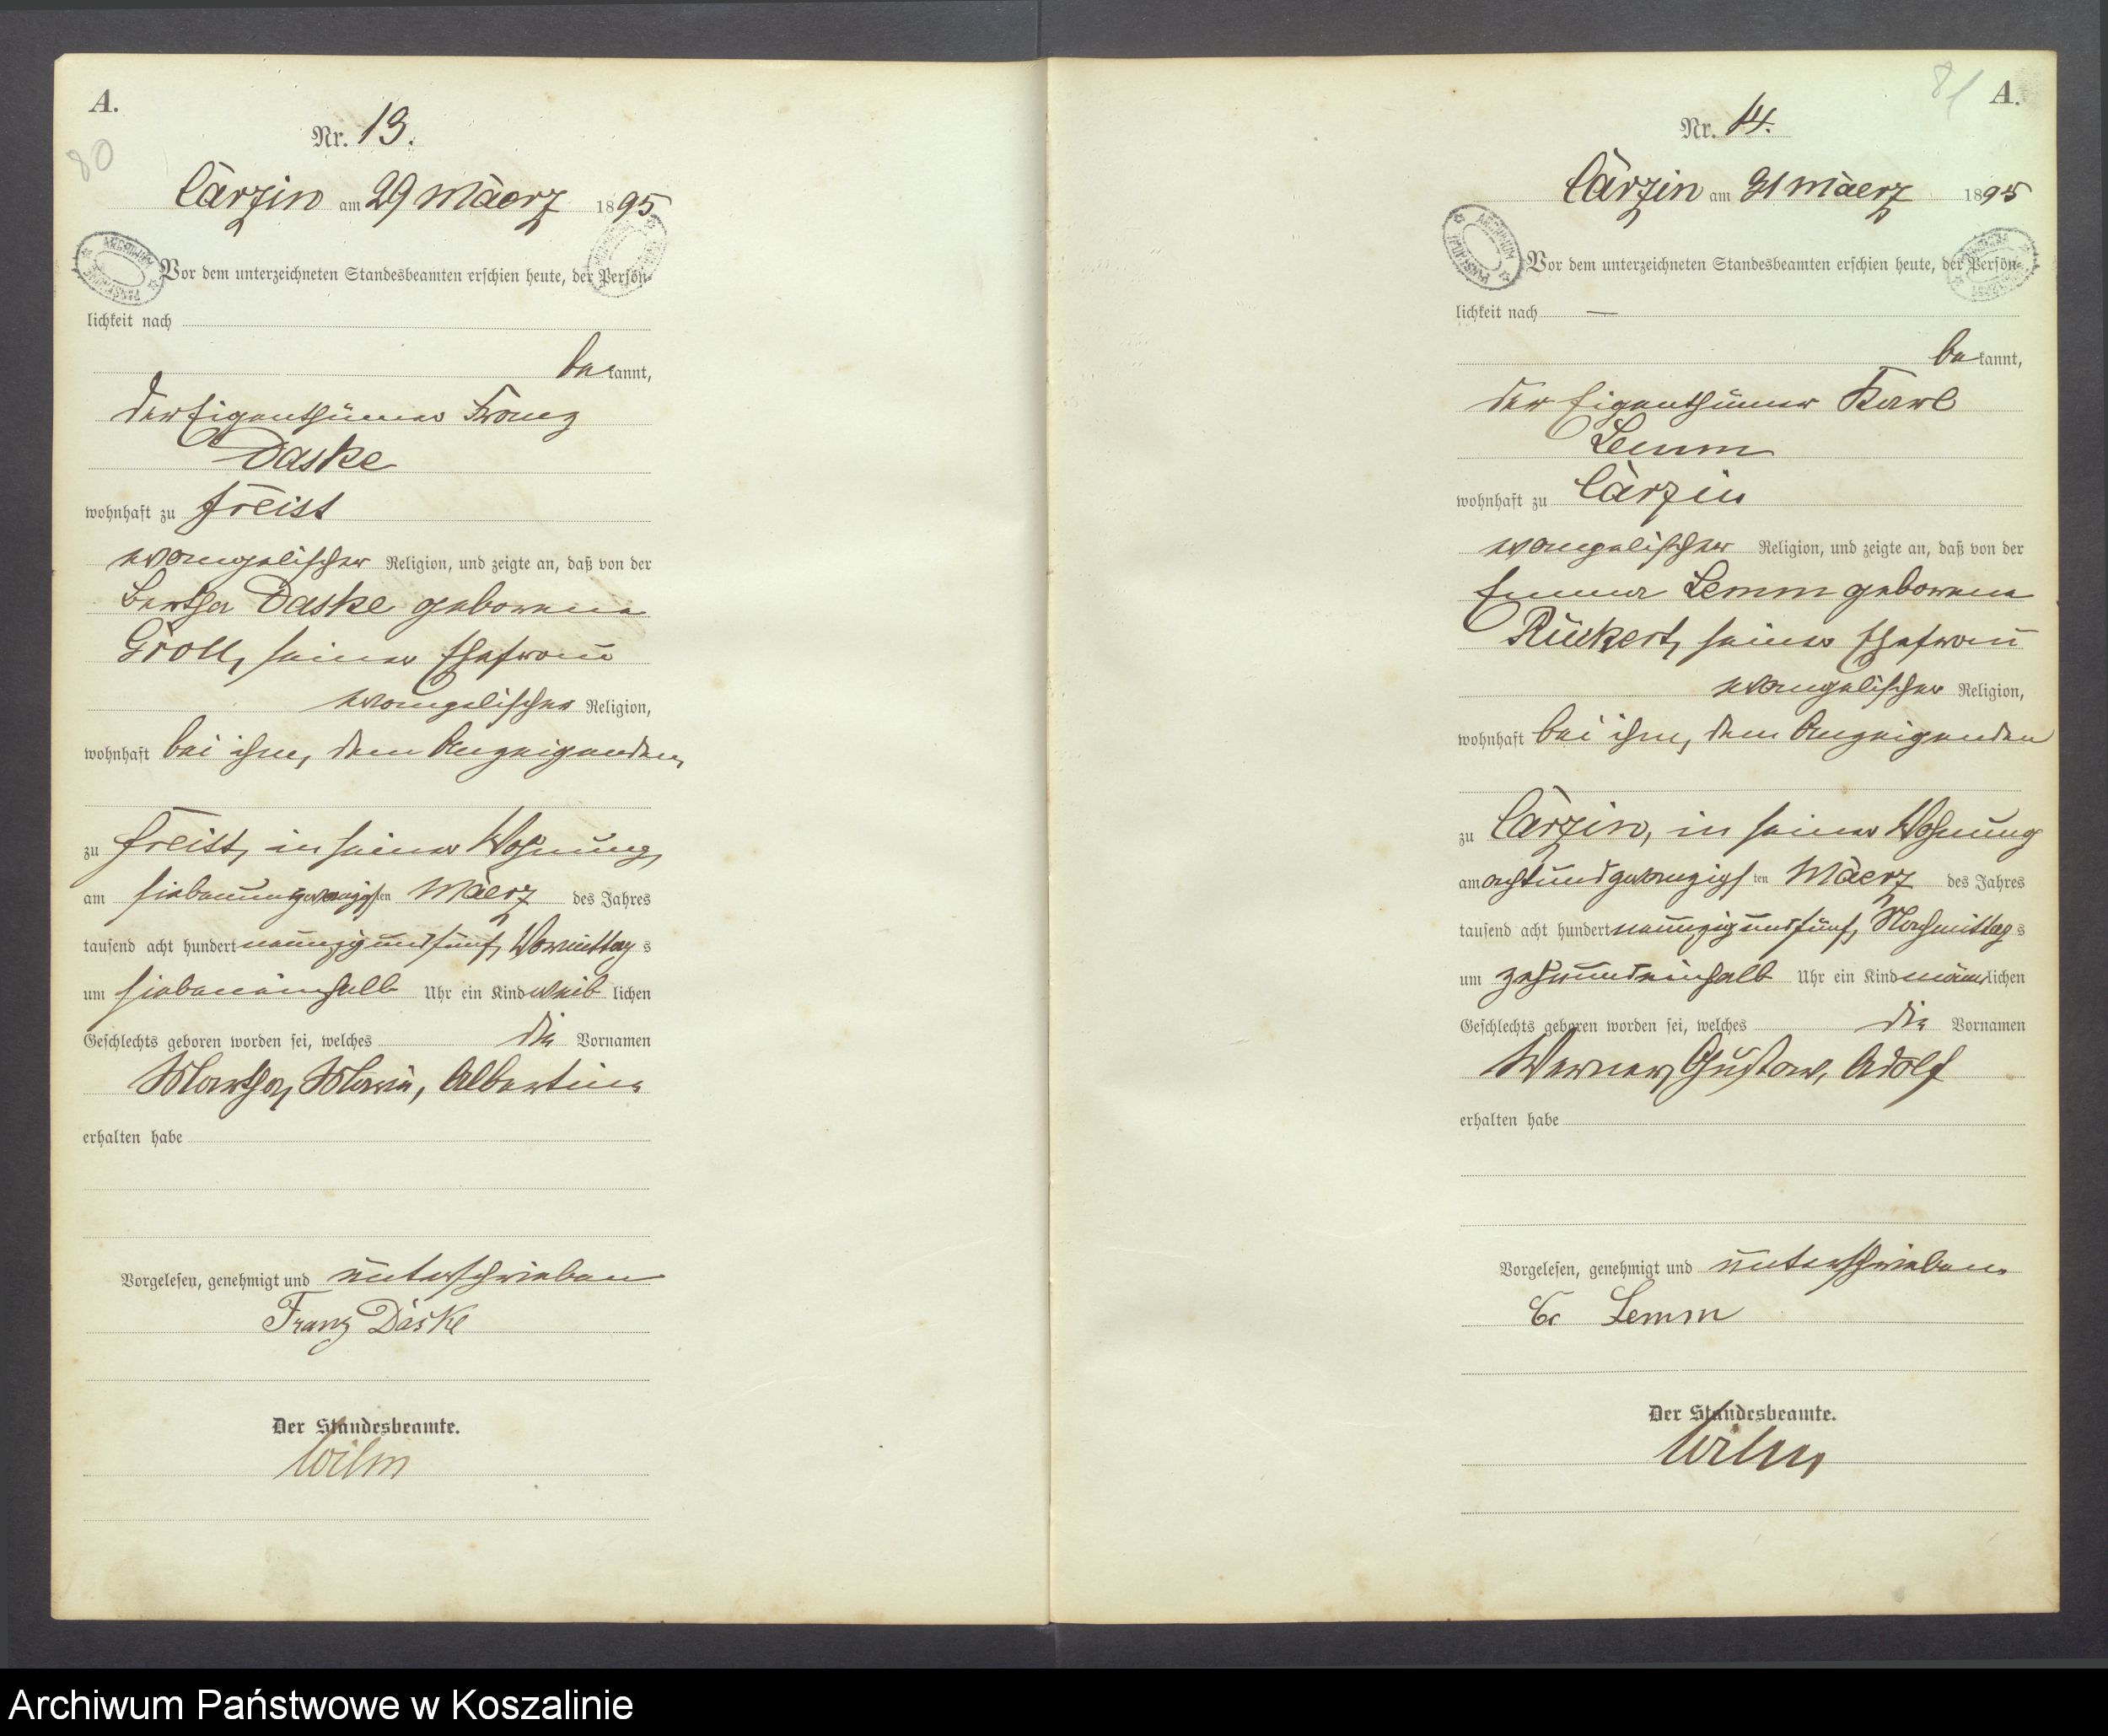 A.
80
Nr. 13.
Cärzin am 29 Maerz 1895
Vor dem unterzeichneten Standesbeamten erschien heute, der Persön-
lichkeit nach
bekannt,
der Eigenthümer Franz
Daske
wohnhaft zu Freist
evangelischer Religion, und zeigte an, daß von der
Bertha Daske geborene
Groll, seiner Ehefrau
evangelischer Religion,
wohnhaft bei ihm, dem Anzeigenden,
zu Freist, in seiner Wohnung,
am siebenundzwanzigsten Maerz des Jahres
tausend acht hundert neunzig und fünf, Vormittags
um siebeneinhalb Uhr ein Kind weiblichen
Geschlechts geboren worden sei, welches die Vornamen
Martha, Marie, Albertine
erhalten habe
Vorgelesen, genehmigt und unterschrieben
Franz Daske
Der Standesbeamte.
Wilm
81
A.
Nr. 14.
Cärzin am 31 Maerz 1895
Vor dem unterzeichneten Standesbeamten erschien heute, der Persön-
lichkeit nach —
bekannt,
der Eigenthümer Karl
Lemm
wohnhaft zu Cärzin
evangelischer Religion, und zeigte an, daß von der
Emma Lemm geborene
Rückert, seiner Ehefrau
evangelischer Religion,
wohnhaft bei ihm, dem Anzeigenden
zu Cärzin, in seiner Wohnung
am achtundzwanzigsten Maerz des Jahres
tausend acht hundert neunzig und fünf, Nachmittags
um zehnundeinhalb Uhr ein Kind männlichen
Geschlechts geboren worden sei, welches die Vornamen
Werner, Gustav, Adolf
erhalten habe
Vorgelesen, genehmigt und unterschrieben
Lemm
Der Standesbeamte.
Wilm
Archiwum Państwowe w Koszalinie